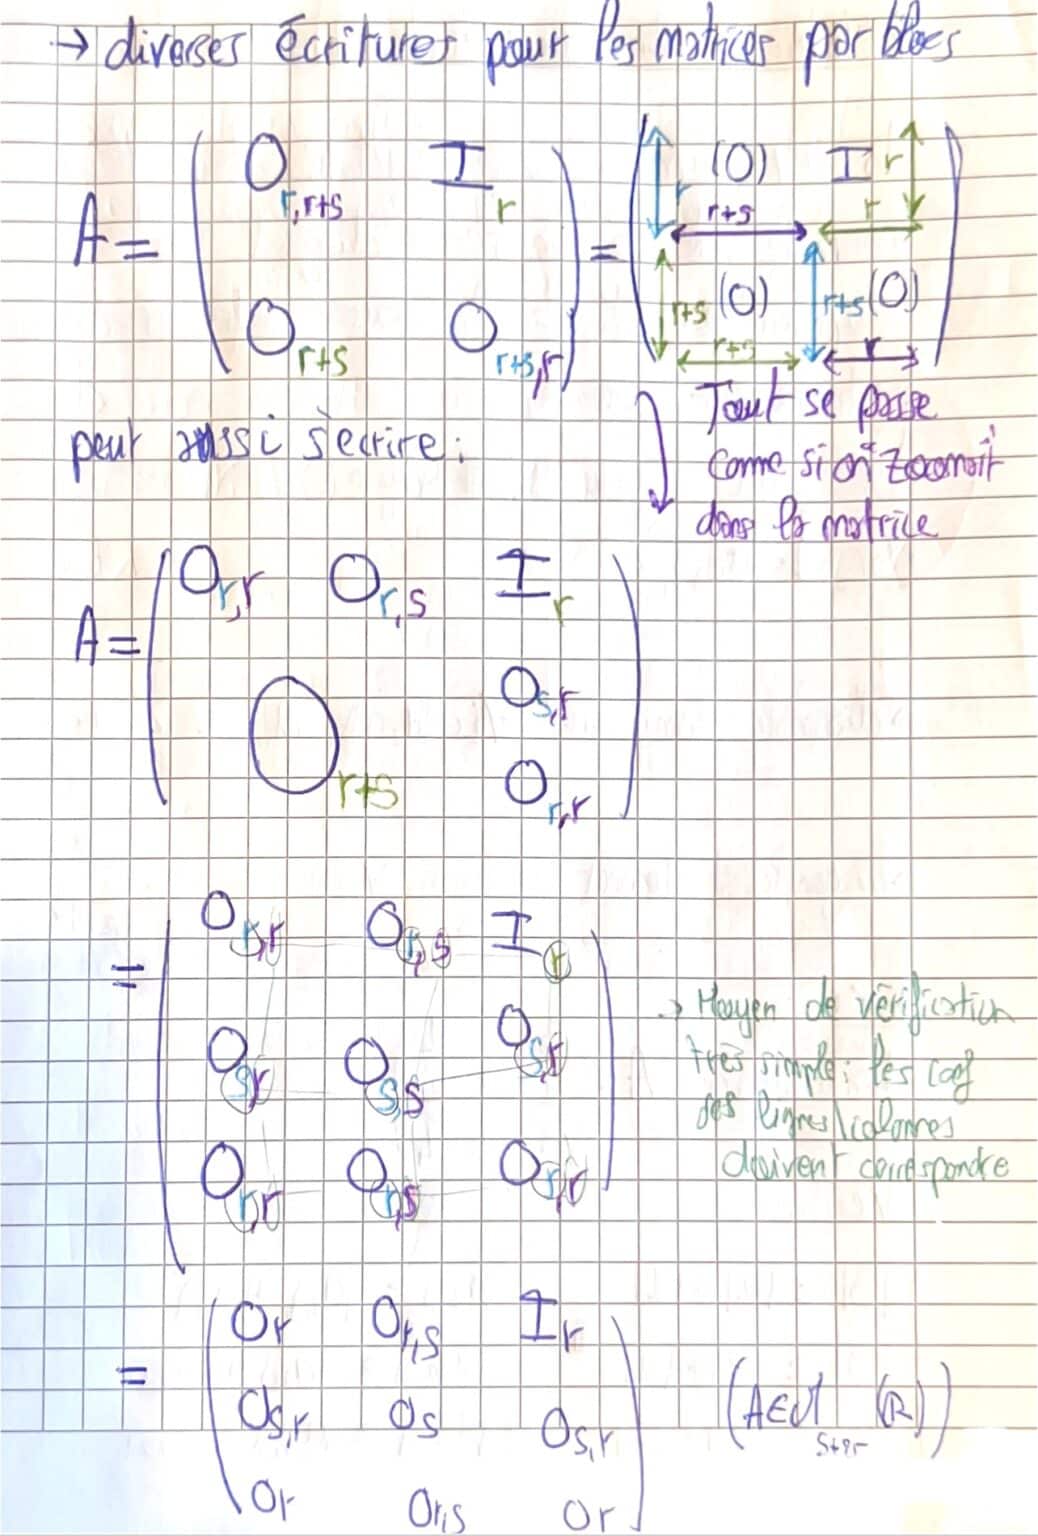 → diverses écritures pour les matrices par blocs
A = ( O r,r+s I r ; O r+s O r+s,r ) = ( r (O) r+s I r r ; r+s (O) r+s r+s (O) r )
peut aussi s'écrire :
Tout se passe
comme si on zoomait
dans la matrice
A = ( O r,r O r,s I r
O s,r
O r+s O r,r )
= ( O r,r O r,s I r
O s,r O s,s O s,r
O r,r O r,s O r,r )
→ Moyen de vérification
très simple : les coef
des lignes/colonnes
doivent correspondre
= ( O r O r,s I r
O s,r O s O s,r
O r O r,s O r )
(A ∈ M s+2r (R))